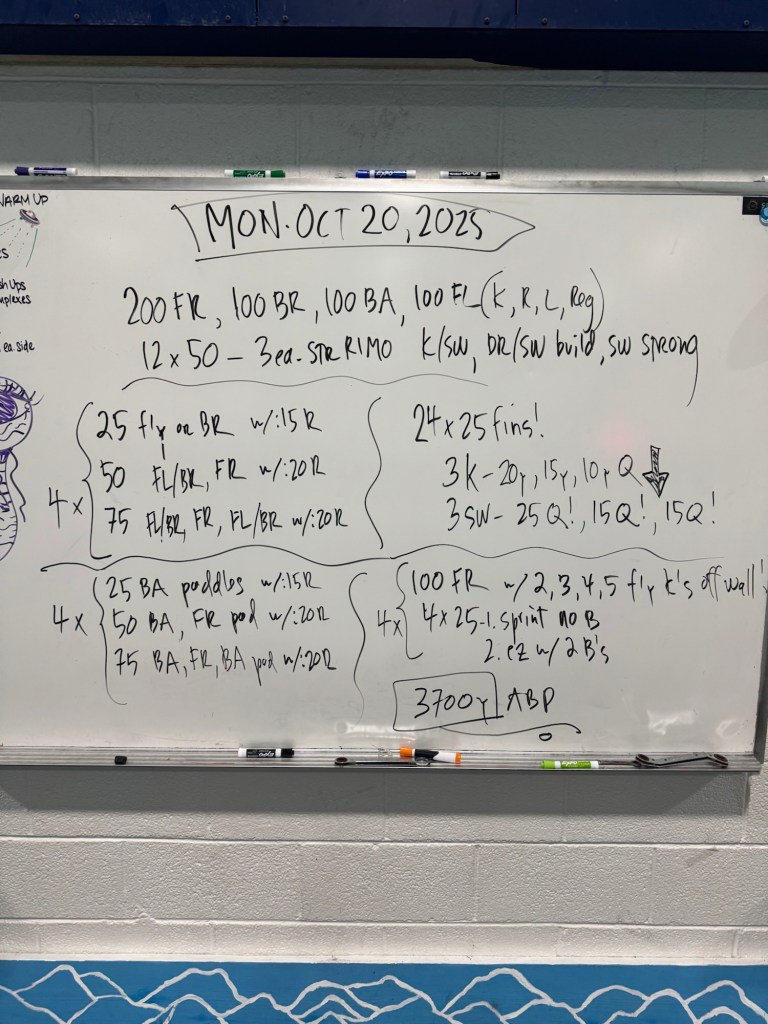 WARM UP
MON. OCT 20, 2025
200 FR, 100 BR, 100 BA, 100 FL (K, R, L, Reg)
12 x 50 - 3 ea. STR RIMO K/SW, DR/SW build, SW strong
4 x
25 fly or BR w/:15R
50 FL/BR, FR w/:20R
75 FL/BR, FR, FL/BR w/:20R
24 x 25 fins!
3K - 20y, 15y, 10y Q
3SW - 25Q!, 15Q!, 15Q!
4 x
25 BA paddles w/:15R
50 BA, FR pad w/:20R
75 BA, FR, BA pad w/:20R
4x
100 FR w/ 2, 3, 4, 5 fly K's off wall!
4 x 25 - 1. sprint no B
2. ez w/ 2 B's
3700y ABP
ea. side
EXPO